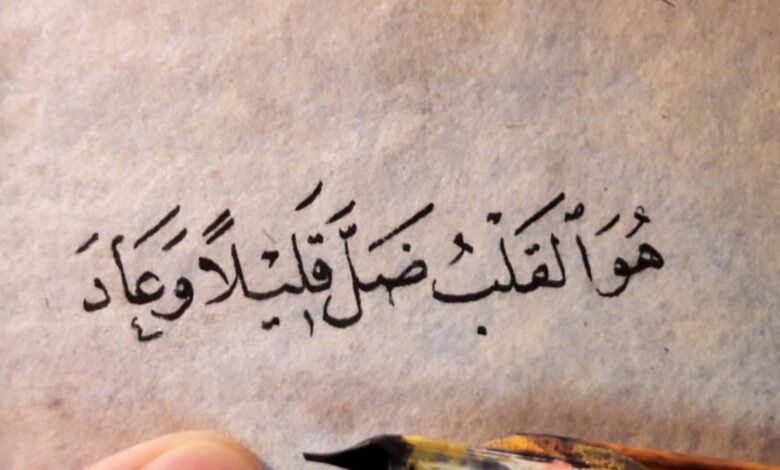 هُوَ ٱلْقَلْبُ ضَلَّ قَلِيْلاً وَعَادَ